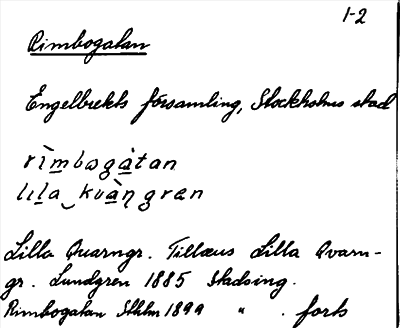 1-2
Rimbogatan
Engelbrekts församling, Stockholms stad
rìmbωgàtan
lıla‿kvàηgræn
Lilla Quarngr. Tillæus Lilla Qvarn-
gr. Lundgren 1885 Stadsing.
Rimbogatan Sthlm 1899 " . forts